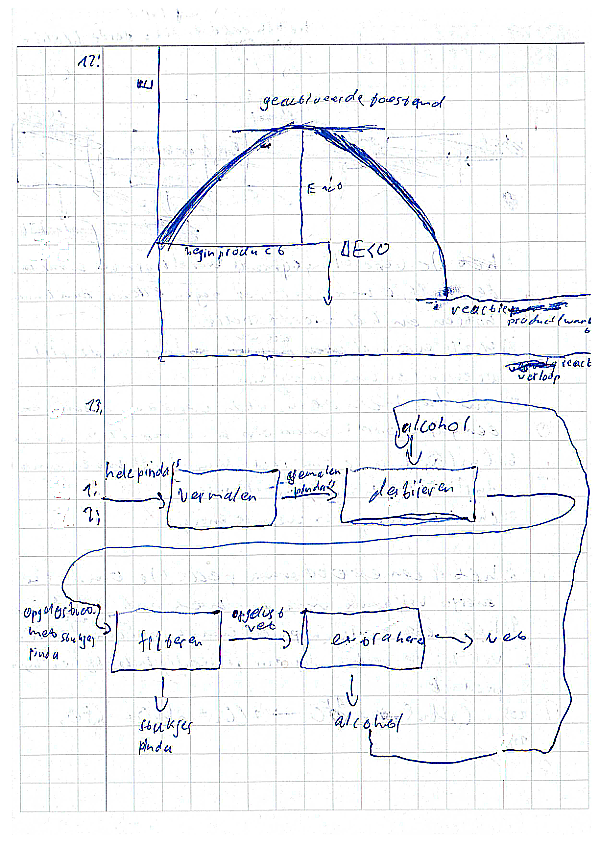 12.
E
geactiveerde toestand
E >0
beginproduct
ΔE<0
reactie
product(want
react
verloop
13.
alcohol
hele pinda's
gemalen
1.
vermalen
pinda's
destilleren
2.
opgelost
met stukjes
pinda
filteren
opgelost
vet
extrahere
vet
stukjes
pinda
alcohol